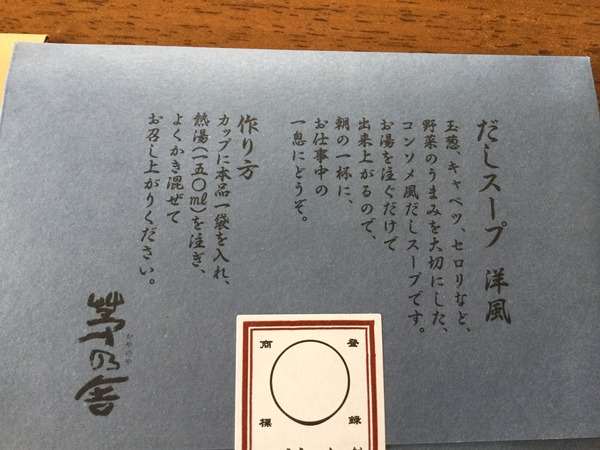 だしスープ 洋風
玉葱、キャベツ、セロリなど、
野菜のうまみを大切にした、
コンソメ風だしスープです。
お湯を注ぐだけで
出来上がるので、
朝の一杯に、
お仕事中の
一息にどうぞ。
作り方
カップに本品一袋を入れ、
熱湯(一五〇㎖)を注ぎ、
よくかき混ぜて
お召し上がりください。
茅乃舎
かやのや
登録
商標